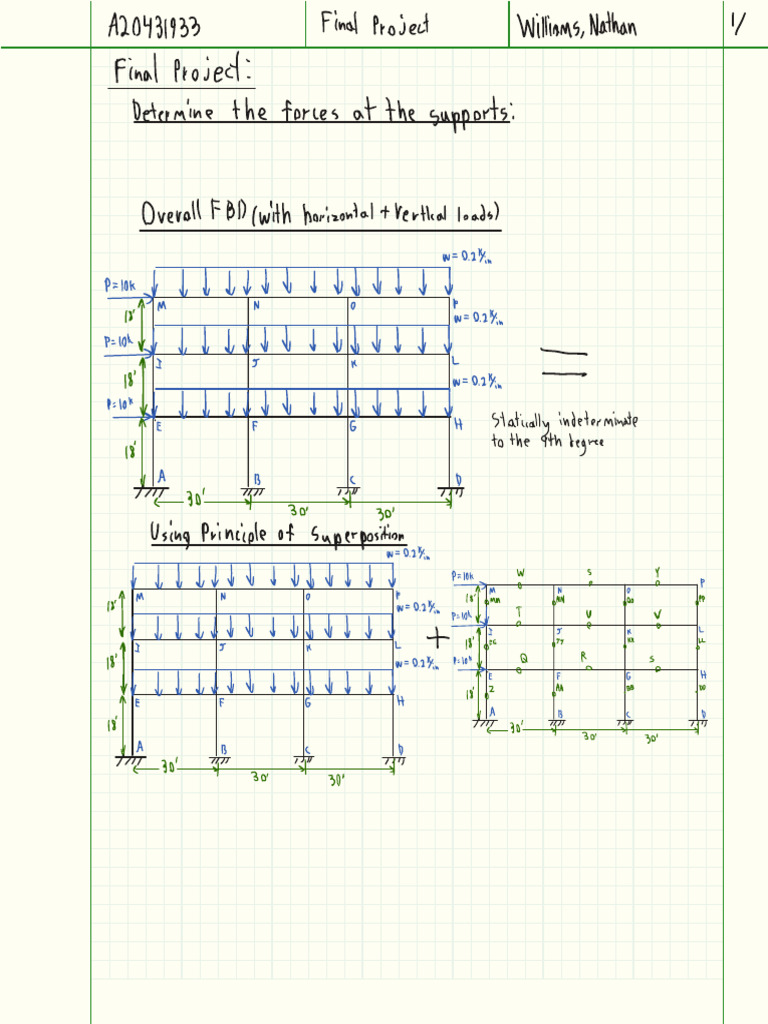 A20431933 Final Project Williams, Nathan 1/
Final Project:
Determine the forces at the supports:
Overall FBD (with horizontal + vertical loads)
w=0.2 k/in
P=10k
M N O P
18'
w=0.2 k/in
P=10k
I J K L
18'
w=0.2 k/in
P=10k
E F G H
18'
A B C D
30' 30' 30'
=
Statically indeterminate
to the 9th degree
Using Principle of Superposition
w=0.2 k/in
M N O P
18'
w=0.2 k/in
I J K L
18'
w=0.2 k/in
E F G H
18'
A B C D
30' 30' 30'
+
P=10k
W S Y
M N O P
18'
P=10k
T U V
I J K L
18'
P=10k
Q R S
E F G H
18'
Z AA BB
A B C D
30' 30' 30'